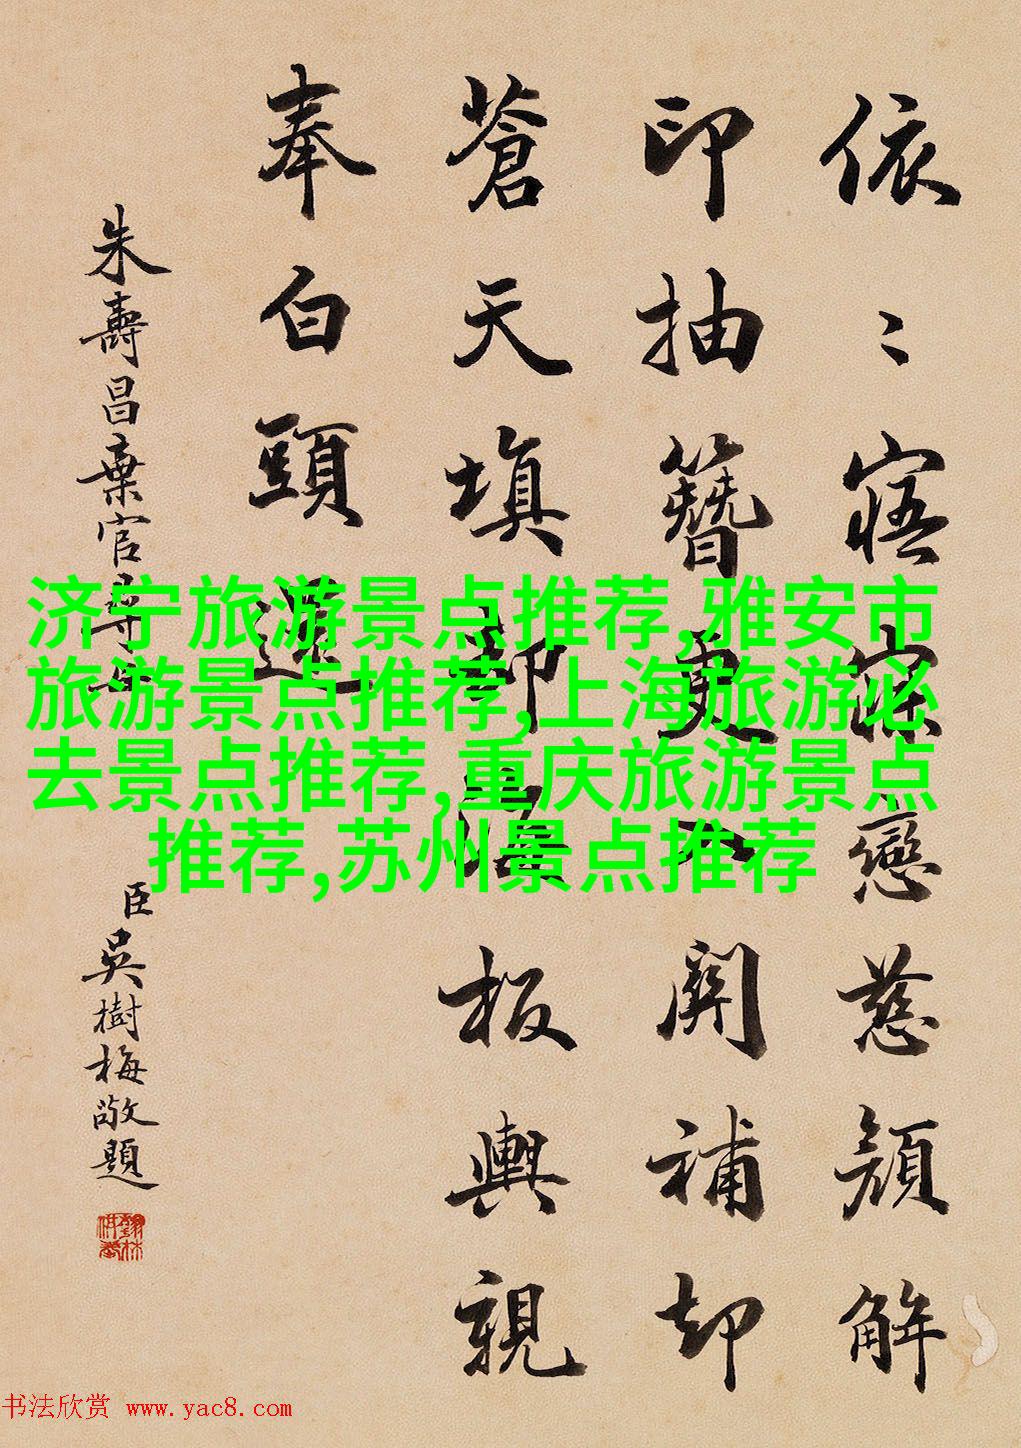 依〻寤寐戀慈顏解
印抽簪更入關補却
蒼天填海板輿親
奉白頭還
朱壽昌棄官尋母
臣吳樹梅敬題
济宁旅游景点推荐,雅安市
旅游景点推荐,上海旅游必
去景点推荐,重庆旅游景点
推荐,苏州景点推荐
书法欣赏 www.yac8.com